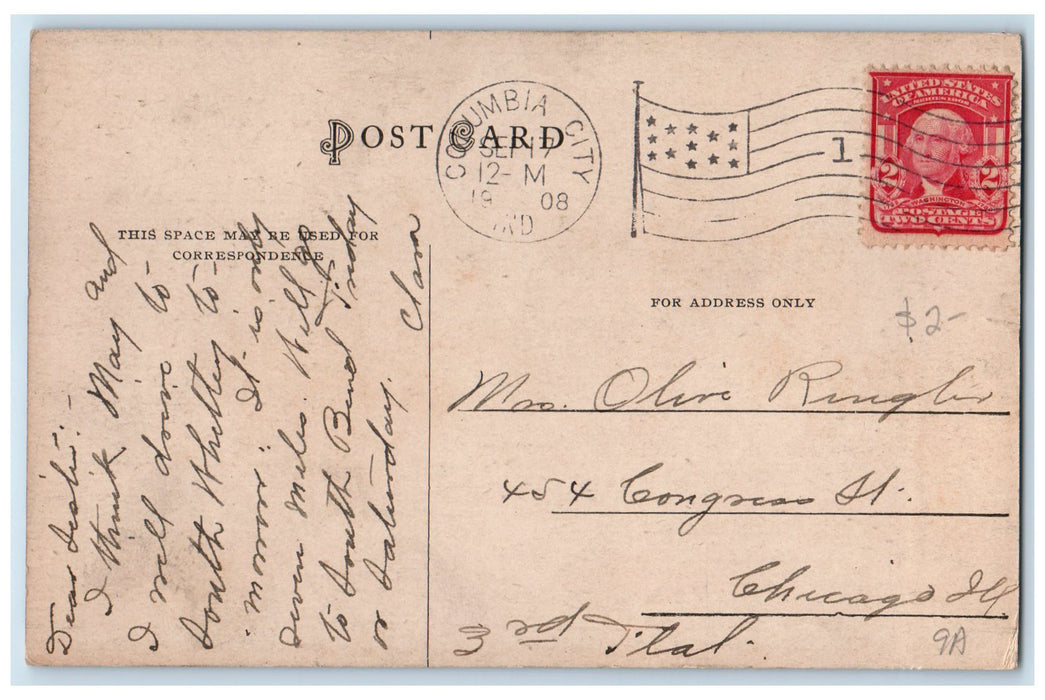 POST CARD
COLUMBIA CITY
SEP 17
12-M
19 08
IND
1
UNITED STATES
OF AMERICA
SERIES 1902
2 2
WASHINGTON
POSTAGE
TWO CENTS
THIS SPACE MAY BE USED FOR
CORRESPONDENCE
FOR ADDRESS ONLY
$2-
Dear Sister:-
I think May and
I will drive to-
South Whitley to-
morrow. It is only
seven miles. Will go
to South Bend Friday
or Saturday.
Clara
Mrs. Olive Ringler
454 Congress St.
Chicago Ill
3rd Flat.
9A